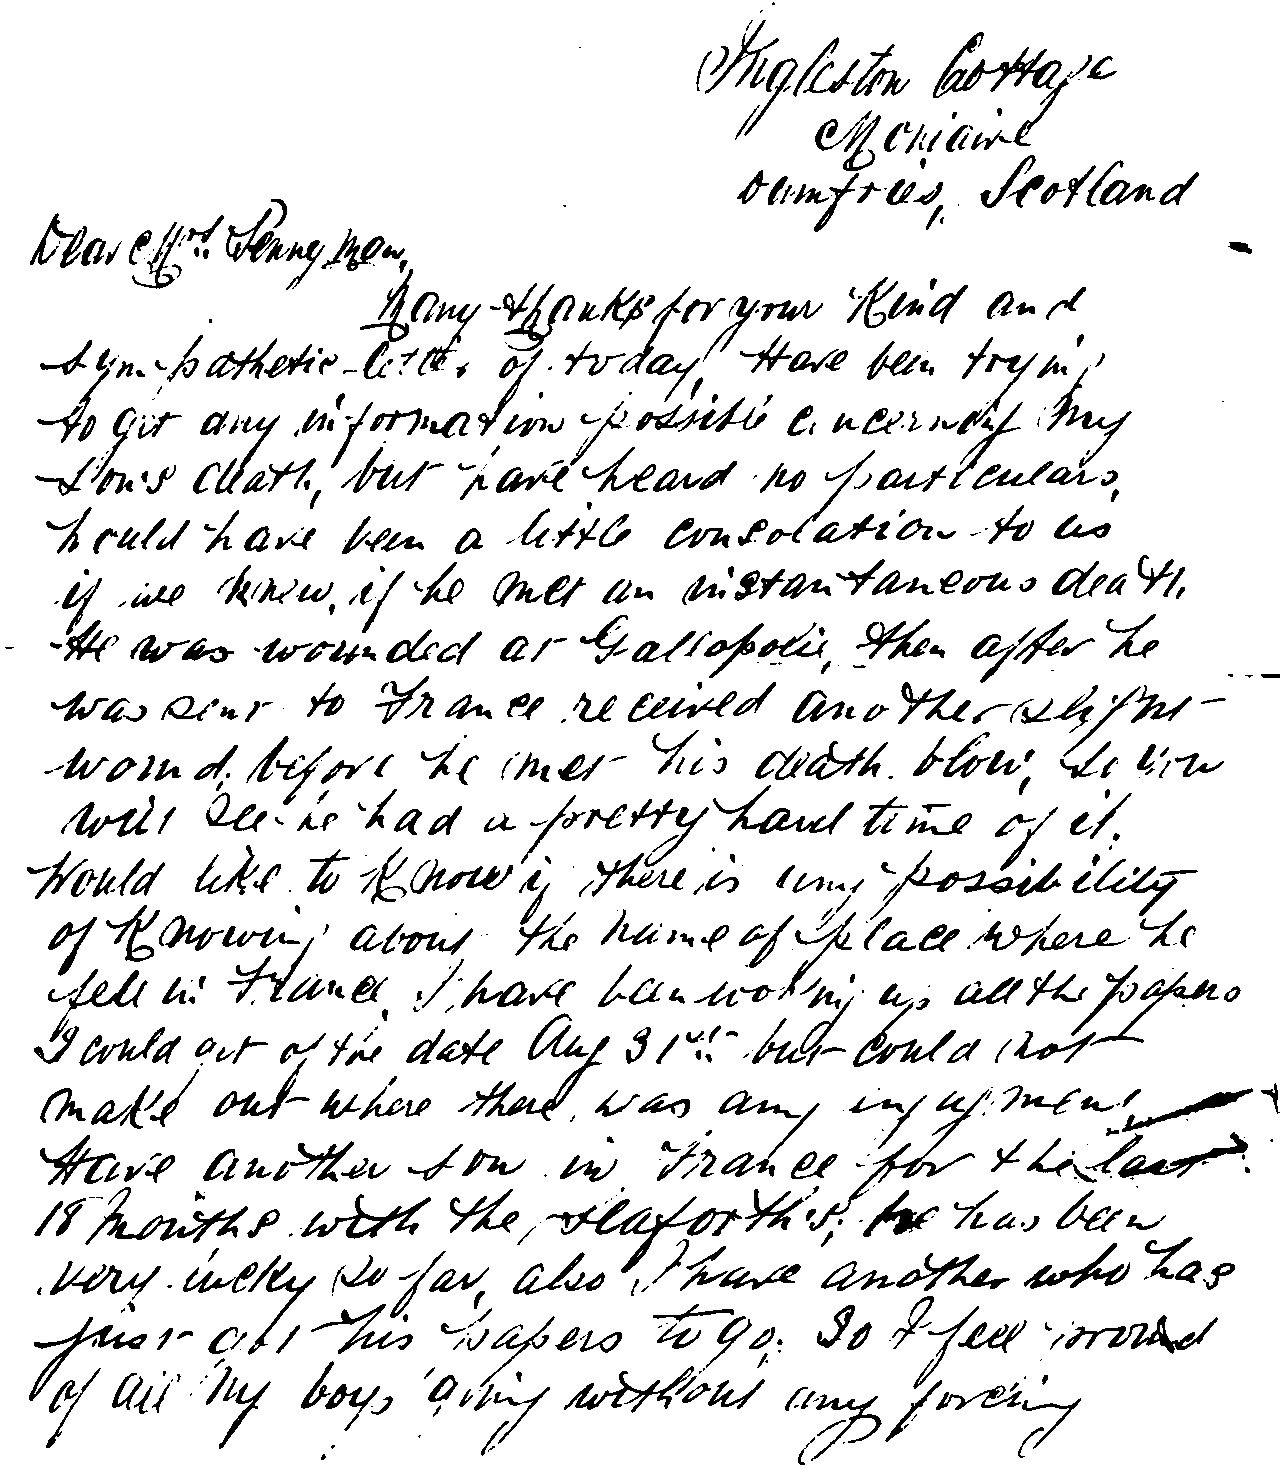 Ingleston Cottage
Moniaive
Dumfries, Scotland
Dear Mrs. Pennyman,
Many thanks for your kind and
sympathetic letter of today, Have been trying
to get any information possible concerning my
son's death, but have heard no particulars,
would have been a little consolation to us
if we knew, if he met an instantaneous death.
He was wounded at Gallopolie, then after he
was sent to France received another slight
wound, before he met his death blow, so you
will see he had a pretty hard time of it.
Would like to know if there is any possibility
of knowing about the name of place where he
fell in France, I have been looking up all the papers
I could get of the date Aug 31st but could not
make out where there was any engagement.
Have another son in France for the last
18 months with the Seaforths, he has been
very lucky so far, also I have another who has
just got his papers to go. So I feel proud
of all my boys going without any forcing